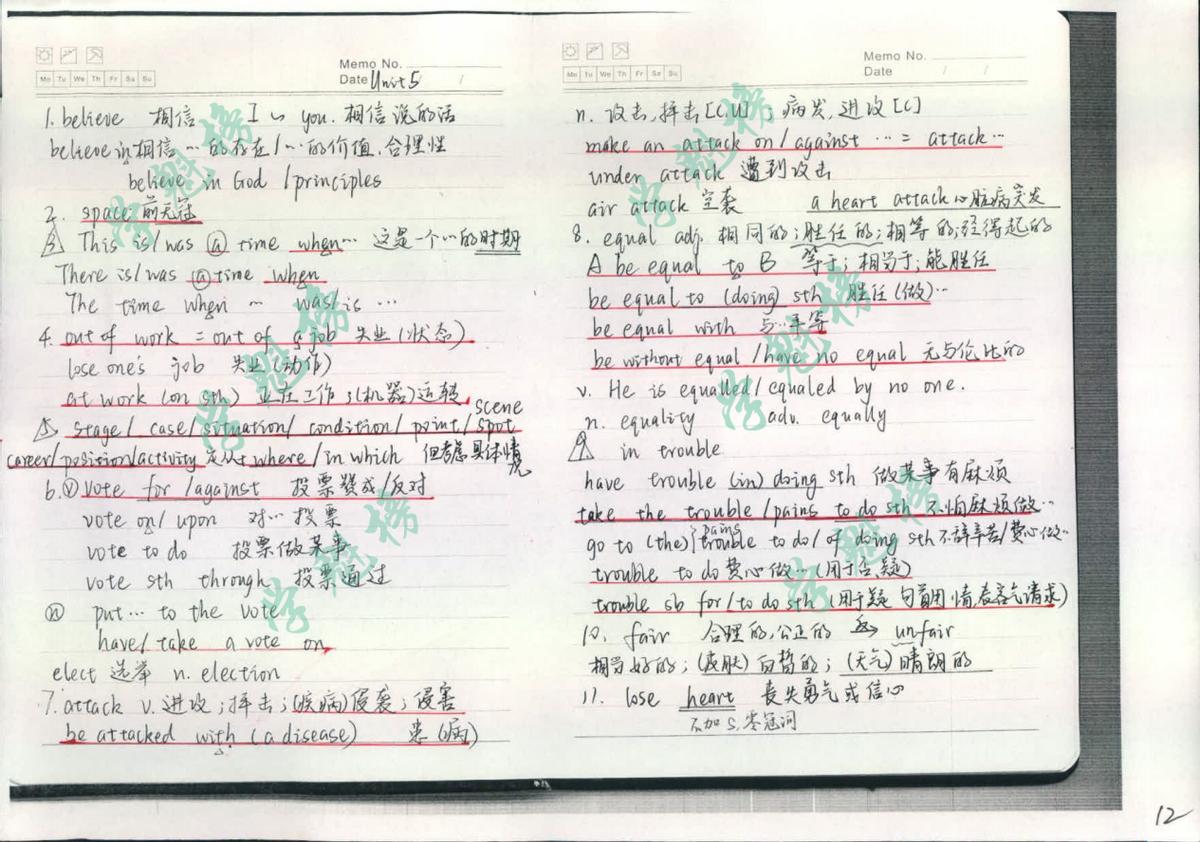 Memo No.
Mo Tu We Th Fr Sa Su
Date Unit 5 /
1. believe 相信 I ~ you. 相信说的话
believe in 相信…的存在/…的价值,合理性
believe in God /principles
2. space 前无冠
3 This is/was a time when… 这是一个…的时期
There is/was a time when
The time when … was/is …
4. out of work = out of a job 失业(状态)
lose one's job 失业(动作)
at work (on sth) 正在工作;(机器)运转
5 stage/ case/situation/ condition/ point/ spot scene
career/position/activity 定从+where/in which 但考虑具体情况
6. v vote for /against 投票赞成/反对
vote on/ upon 对…投票
vote to do 投票做某事
vote sth through 投票通过
n put… to the vote
have/ take a vote on
elect 选举 n. election
7. attack v. 进攻;抨击;(疾病)侵袭;侵害
be attacked with (a disease) 患(病)
Memo No.
Mo Tu We Th Fr Sa Su
Date / /
n. 攻击,抨击[C,U];病发,进攻[C]
make an attack on/against … = attack…
under attack 遭到攻击
air attack 空袭 a heart attack 心脏病突发
8. equal adj. 相同的;胜任的;相等的;经得起的
A be equal to B 等于;相当于;能胜任
be equal to (doing) sth 胜任(做)…
be equal with 与…平等
be without equal /have no equal 无与伦比的
v. He is equalled/ equaled by no one.
n. equality adv. equally
9 in trouble
have trouble (in) doing sth 做某事有麻烦
take the trouble/pains to do sth 不怕麻烦做…
go to (the) pains trouble to do/ of doing sth 不辞辛苦/费心做…
trouble to do 费心做…(用于否,疑)
trouble sb for/to do sth (用于疑句,可用情,表客气请求)
10. fair 合理的,公正的 反→ unfair
相当好的;(皮肤)白皙的;(天气)晴朗的
11. lose heart 丧失勇气或信心
不加s,零冠词
学魁榜
学魁榜
学魁榜
学魁榜
12